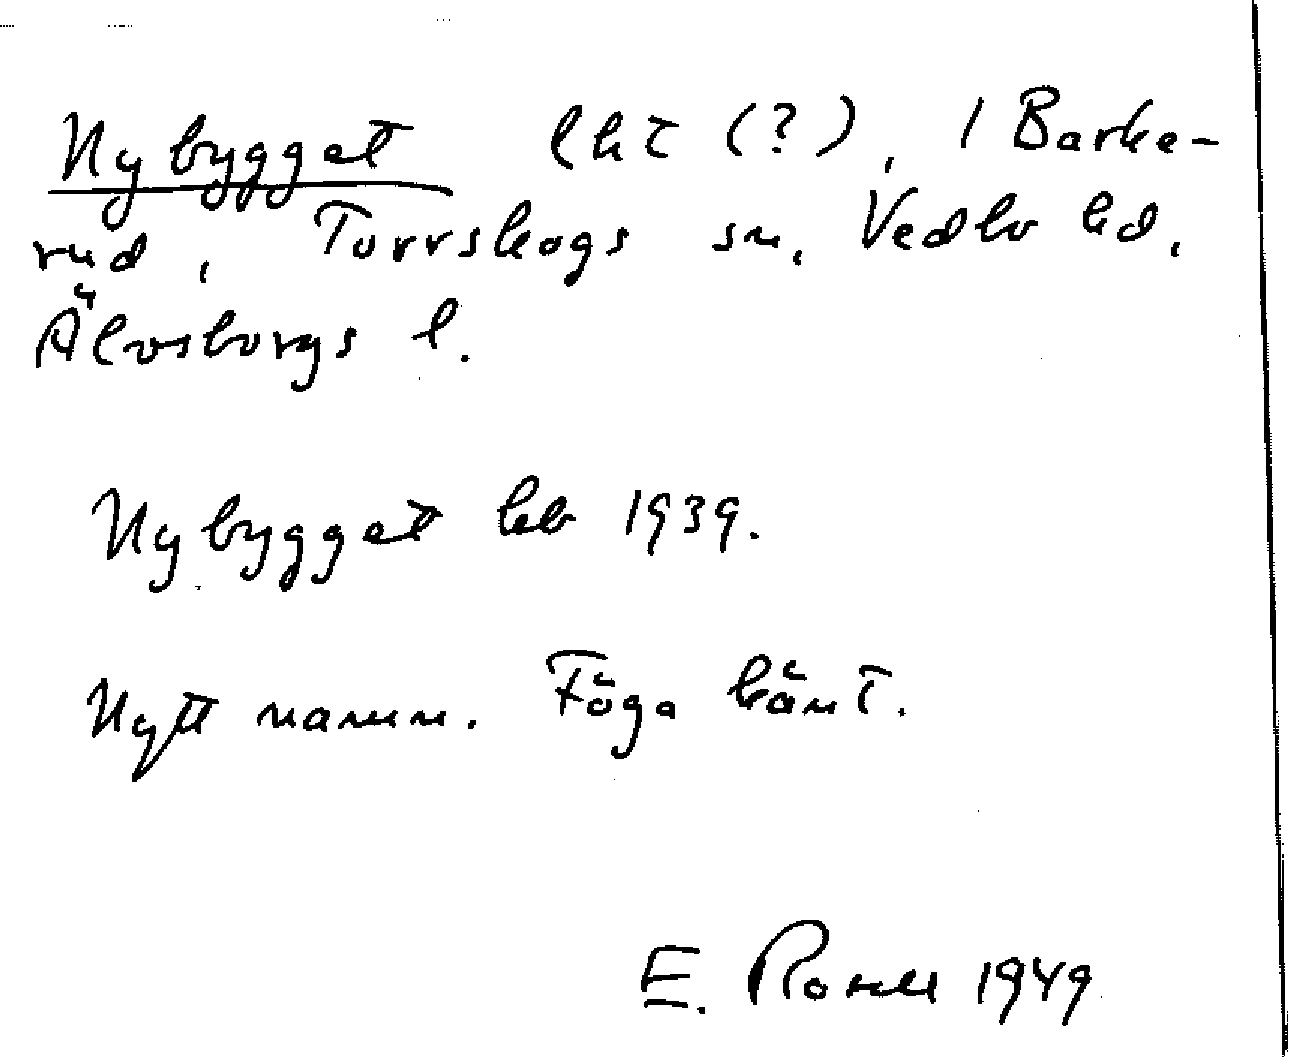 Nybygget lht (?), / Barke-
rud, Torrskogs sn, Vedbo hd,
Älvsborgs l.
Nybygget kb 1939.
Nytt namn. Föga känt.
E. Rohm 1949